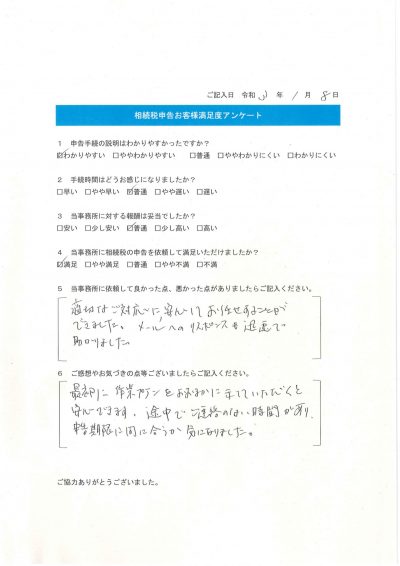 ご記入日 令和 3 年 1 月 8 日
相続税申告お客様満足度アンケート
1 申告手続の説明はわかりやすかったですか?
☑わかりやすい □ややわかりやすい □普通 □ややわかりにくい □わかりにくい
2 手続時間はどうお感じになりましたか?
□早い □やや早い ☑普通 □やや遅い □遅い
3 当事務所に対する報酬は妥当でしたか?
□安い □少し安い ☑普通 □少し高い □高い
4 当事務所に相続税の申告を依頼して満足いただけましたか?
☑満足 □やや満足 □普通 □やや不満 □不満
5 当事務所に依頼して良かった点、悪かった点がありましたらご記入ください。
適切なご対応に安心してお任せすることが
できました。メールへのレスポンスも迅速で
助かりました。
6 ご感想やお気づきの点等ございましたらご記入ください。
最初に作業プランをおおまかに立てていただくと
安心できます。途中でご連絡のない時間があり、
申告期限に間に合うか気になりました。
ご協力ありがとうございました。